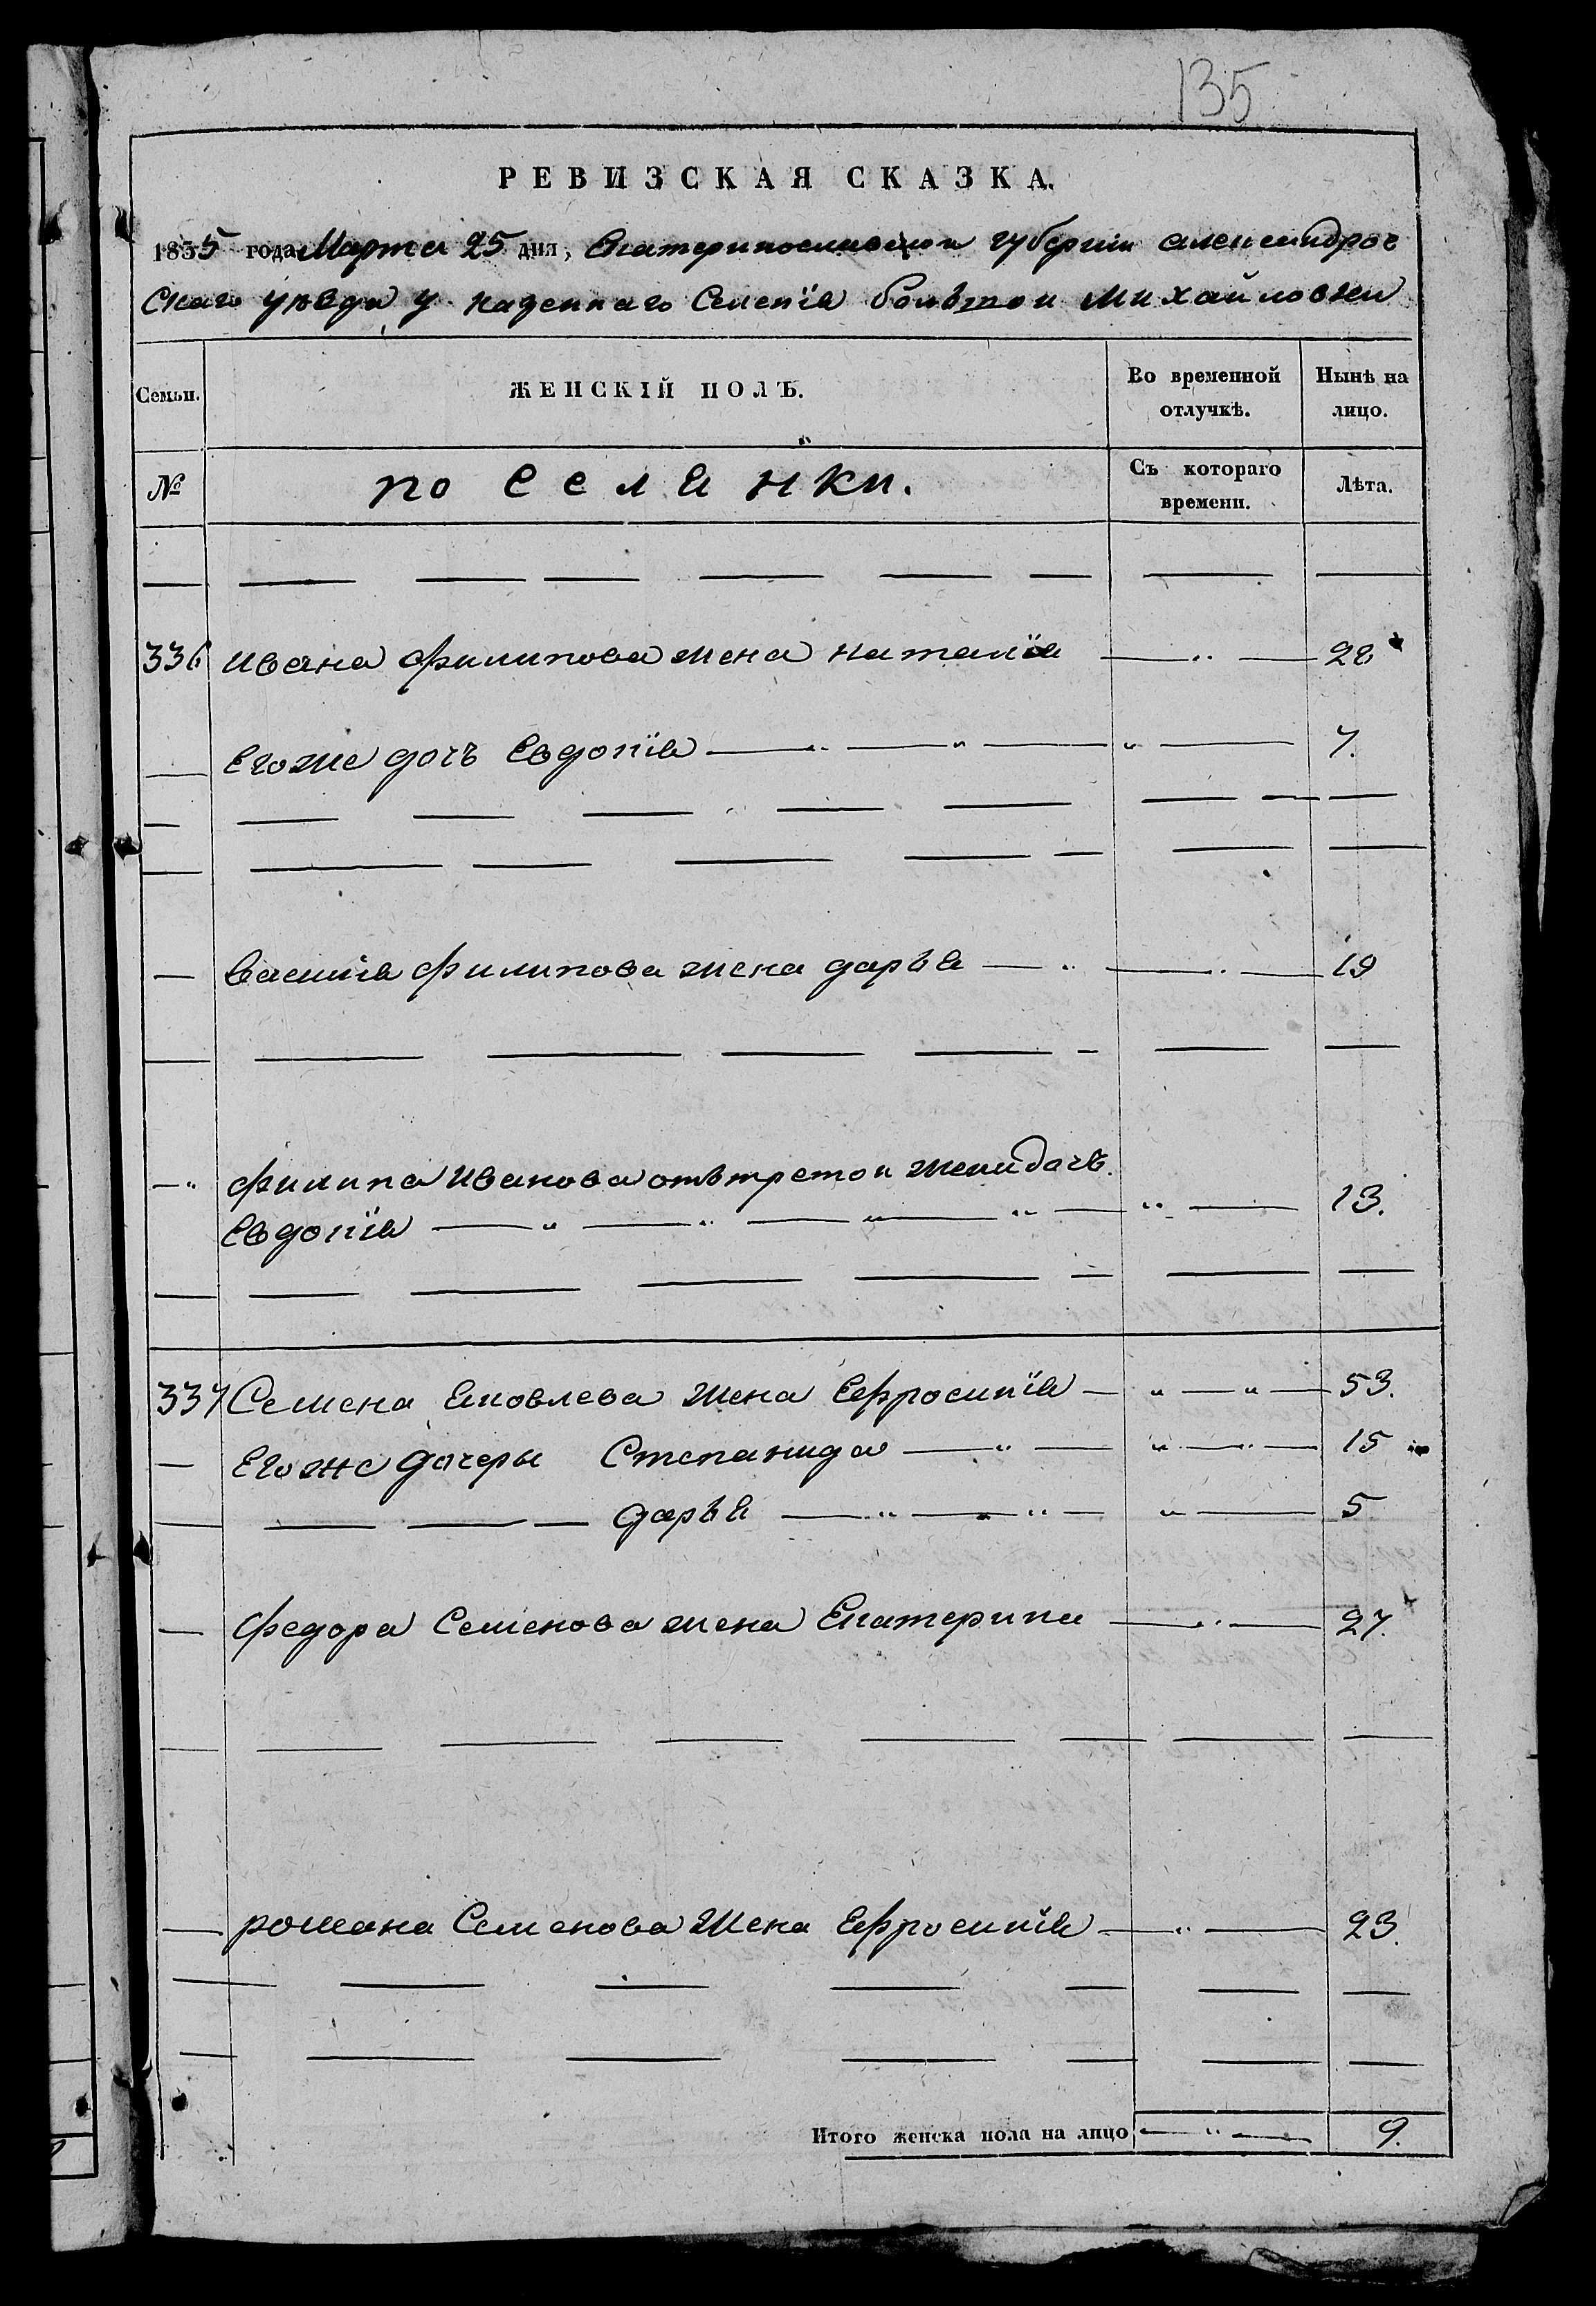 135
РЕВИЗСКАЯ СКАЗКА.
1835 года Марта 25 дня, Екатеринославской губернии александров
скаго уѣзда, казеннаго Селенія большой Михайловки
Семьи. ЖЕНСКІЙ ПОЛЪ. Во временной отлучкѣ. Нынѣ на лицо.
№ поселянки. Съ котораго времени. Лѣта.
336 ивана филипова жена наталія — " — 28
Егоже дочъ Евдокія — " — " — " — 7.
василія филипова жена дарья — " — " — 19
— " филипа иванова отъ третой жени дочъ
Евдокія — " — " — " — " — " — 13.
337 Семена Яковлева жена Ефросинія — " — " — 53.
Егоже дочеры Степанида — " — " — " — 15
— — — дарья — " — " — " — " — 5
федора Семенова жена Екатерина — " — 27.
романа Семенова жена Ефросинія — " — 23.
Итого женска пола на лицо — " — 9.